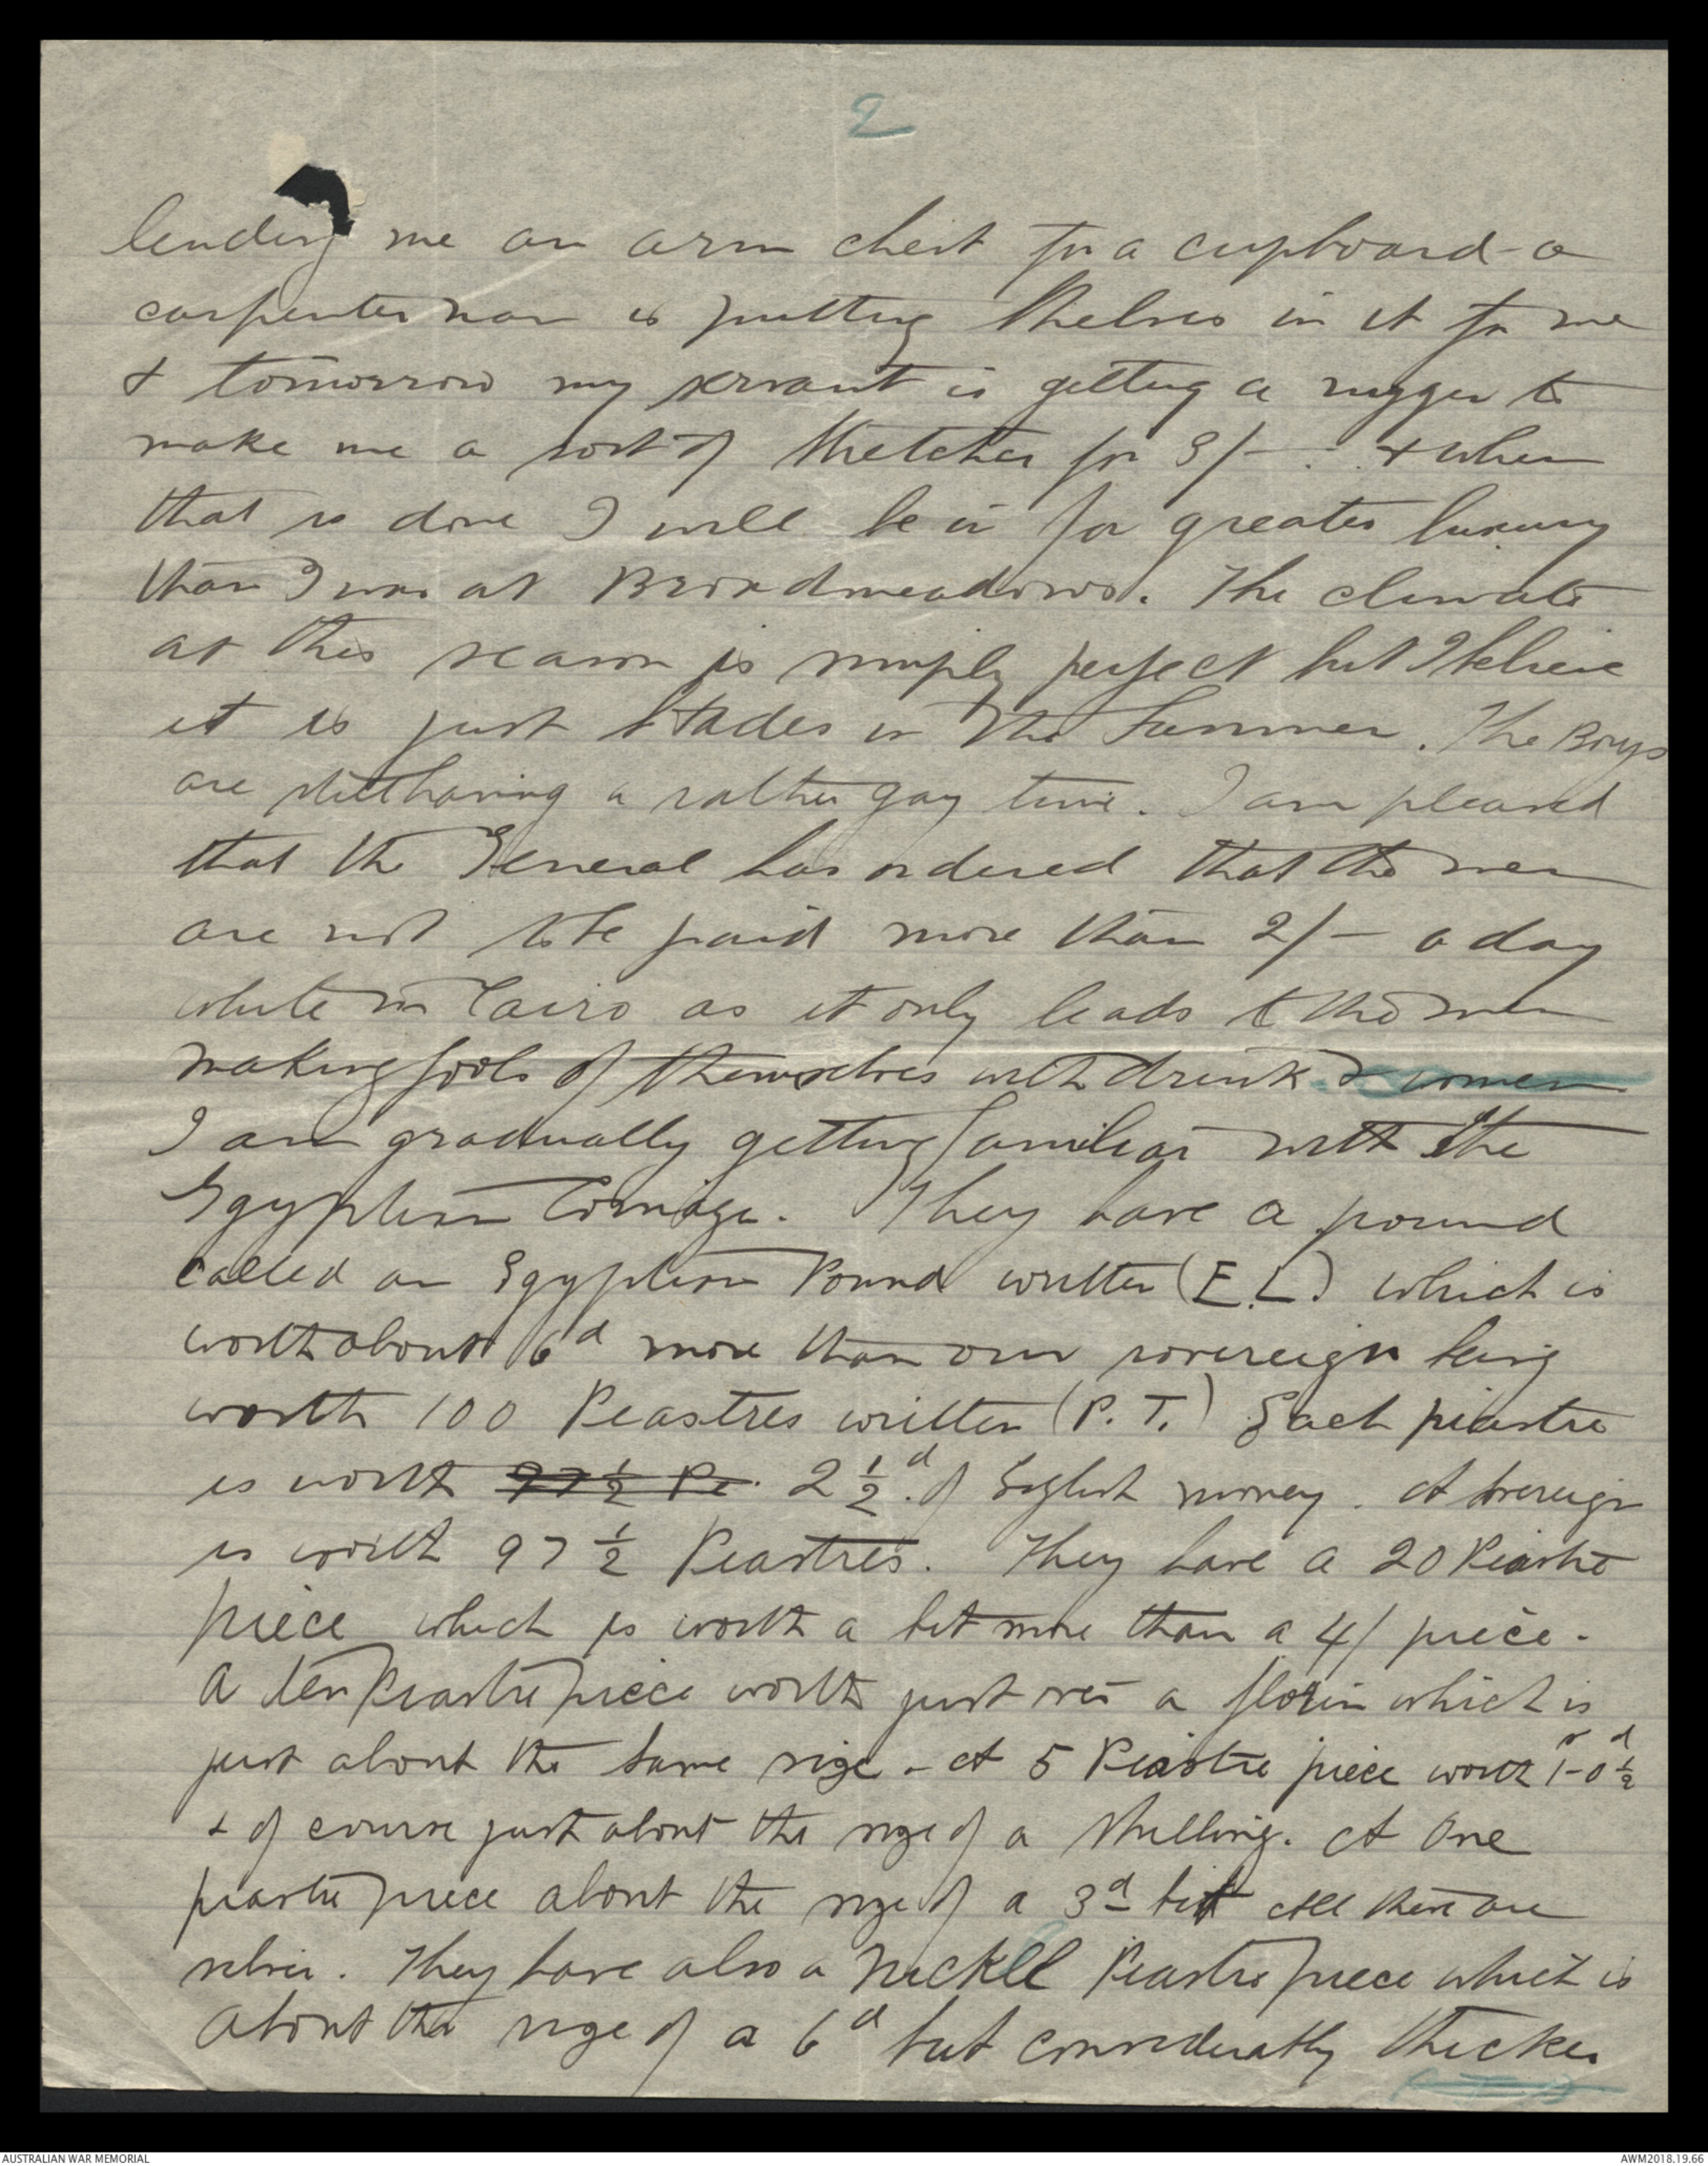 2
lending me an arm chest for a cupboard - a
carpenter now is putting shelves in it for me
& tomorrow my servant is getting a nigger to
make me a sort of stretcher for 3/- . & when
that is done I will be in far greater luxury
than I was at Broadmeadows. The climate
at this season is simply perfect but I believe
it is just Hades in the Summer. The Boys
are still having a rather gay time. I am pleased
that the General has ordered that the men
are not to be paid more than 2/- a day
while in Cairo as it only leads to the men
making fools of themselves with drink & women
I am gradually getting familiar with the
Egyptian Coinage. They have a pound
called an Egyptian Pound written (E.L.) which is
worth about 6d more than our sovereign being
worth 100 Peastres written (P.T.) Each piastre
is worth 97 1/2 Pe. 2 1/2d. of English money. A sovereign
is worth 97 1/2 Peastres. They have a 20 Peastre
piece which is worth a bit more than a 4/ piece -
A ten Peastre piece worth just over a florin which is
just about the same size - A 5 Piastre piece worth 1s-0 1/2d
& of course just about the size of a shilling. A One
piastre piece about the size of a 3d bit All these are
silver. They have also a Nickell Peastre piece which is
about the size of a 6d but considerably thicker
AUSTRALIAN WAR MEMORIAL
AWM2018.19.66